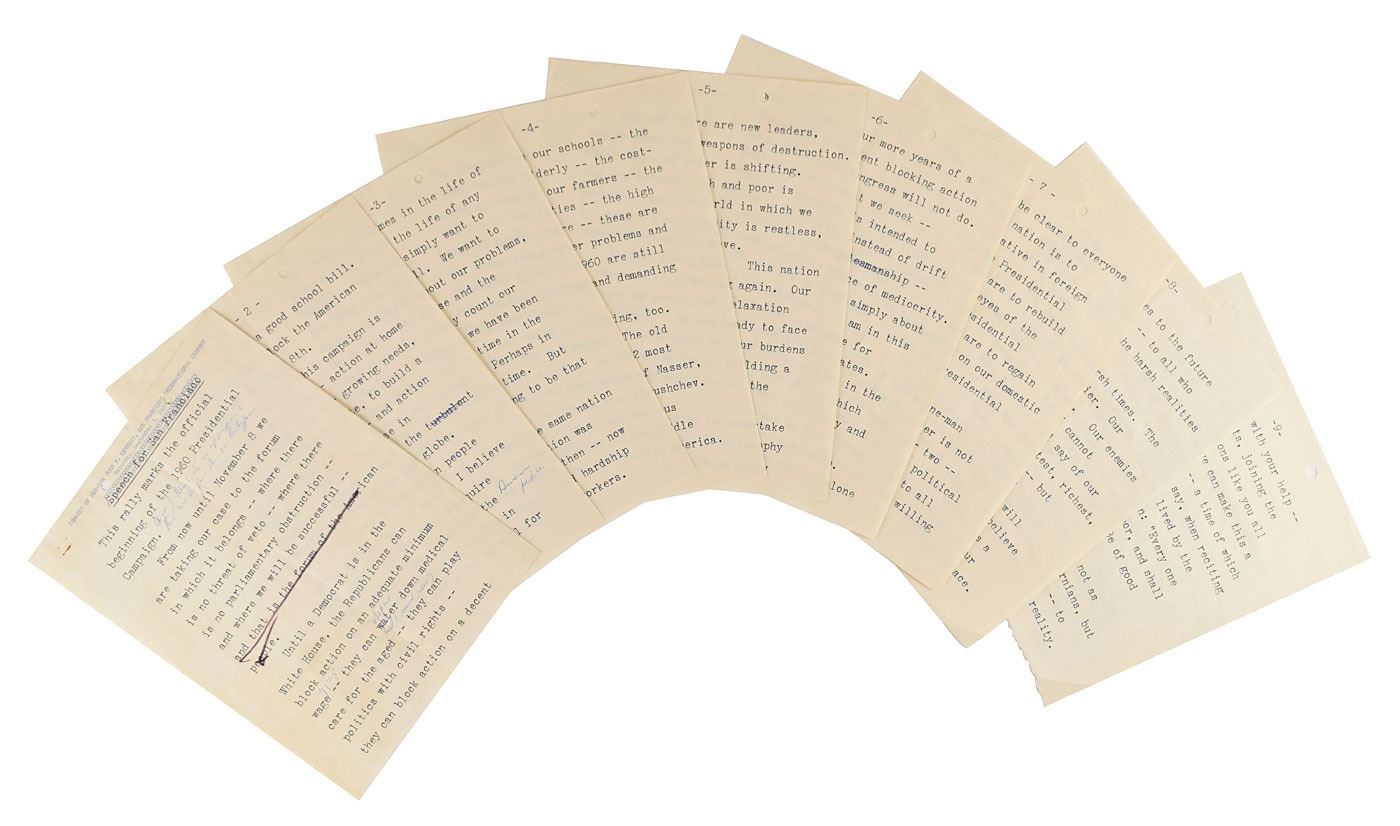 Speech for San Francisco
This rally marks the official
beginning of the 1960 Presidential
Campaign.
From now until November 8 we
are taking our case to the forum
in which it belongs -- where there
is no threat of veto -- where there
is no parliamentary obstruction --
and where we will be successful --
and that is the forum of the American
people.
Until a Democrat is in the
White House, the Republicans can
block action on an adequate minimum
wage -- they can water down medical
care for the aged -- they can play
politics with civil rights --
they can block action on a decent
- 2 -
good school bill.
ock the American
8th.
his campaign is
action at home
growing needs,
e, to build a
and action
se in
the turbulent
globe.
n people
I believe
uire American people
the
in
l for
-3-
mes in the life of
the life of any
simply want to
ll. We want to
out our problems,
se and the
y count our
we have been
time in the
Perhaps in
time. But
ng to be that
e same nation
tion was
then -- now
hardship
orkers.
-4-
our schools -- the
derly -- the cost-
our farmers -- the
ties -- the high
e -- these are
er problems and
960 are still
and demanding
ing, too.
The old
2 most
f Nasser,
ushchev.
us
dle
erica.
-5-
re are new leaders,
weapons of destruction.
er is shifting.
h and poor is
rld in which we
ity is restless,
ve.
This nation
again. Our
elaxation
ady to face
ur burdens
lding a
the
take
phy
-6-
ur more years of a
ent blocking action
ngress will not do.
t we seek --
s intended to
nstead of drift
esmanship --
e of mediocrity.
simply about
am in this
e for
ates.
in the
hich
y and
lone
- 7 -
be clear to everyone
nation is to
ative in foreign
Presidential
are to rebuild
eyes of the
sidential
are to regain
on our domestic
esidential
ne-man
er is not
two --
political
to all
willing
-8-
es to the future
-- to all who
he harsh realities
sh times. The
ier. Our
Our enemies
cannot
say of our
test, richest,
-- but
will
elieve
s a
ur
ace.
-9-
with your help --
ts, joining the
ons like you all
e can make this a
-- a time of which
say, when reciting
lived by the
n: "Every one
or, and shall
e of good
not as
rnians, but
-- to
reality.